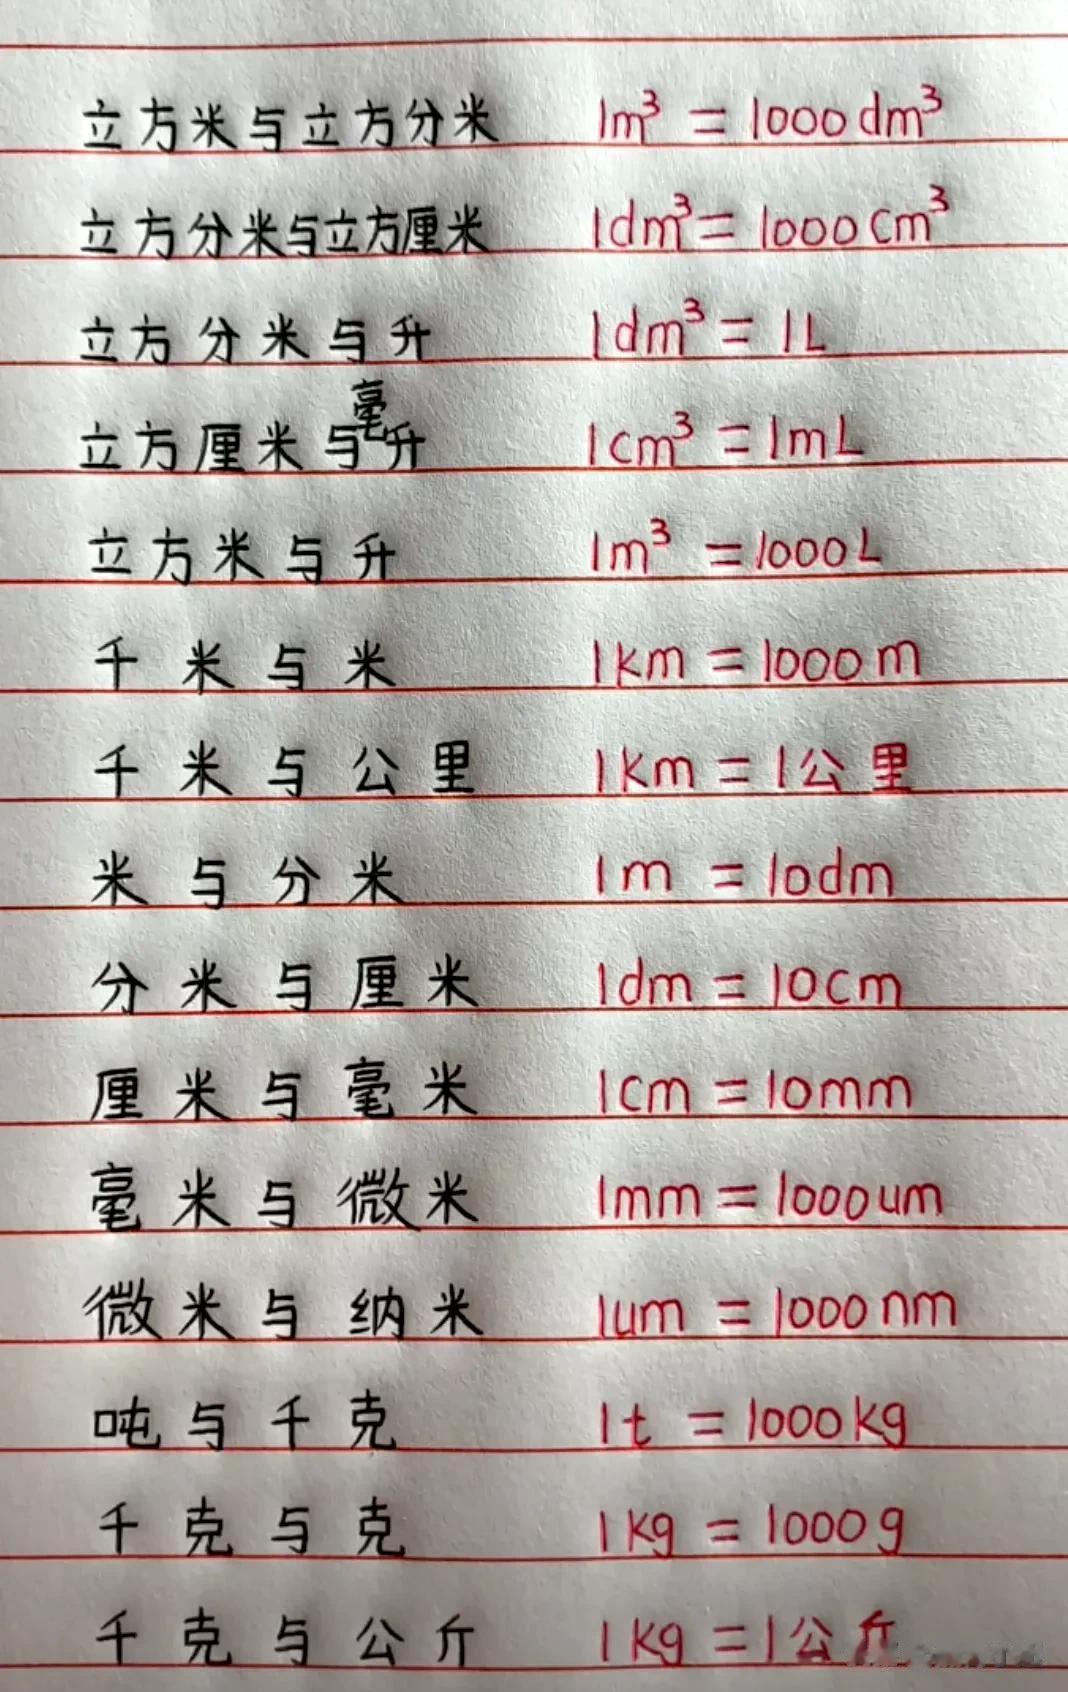 立方米与立方分米 1m³ = 1000dm³
立方分米与立方厘米 1dm³ = 1000cm³
立方分米与升 1dm³ = 1L
立方厘米与毫升 1cm³ = 1mL
立方米与升 1m³ = 1000L
千米与米 1km = 1000m
千米与公里 1km = 1公里
米与分米 1m = 10dm
分米与厘米 1dm = 10cm
厘米与毫米 1cm = 10mm
毫米与微米 1mm = 1000um
微米与纳米 1um = 1000nm
吨与千克 1t = 1000kg
千克与克 1kg = 1000g
千克与公斤 1kg = 1公斤